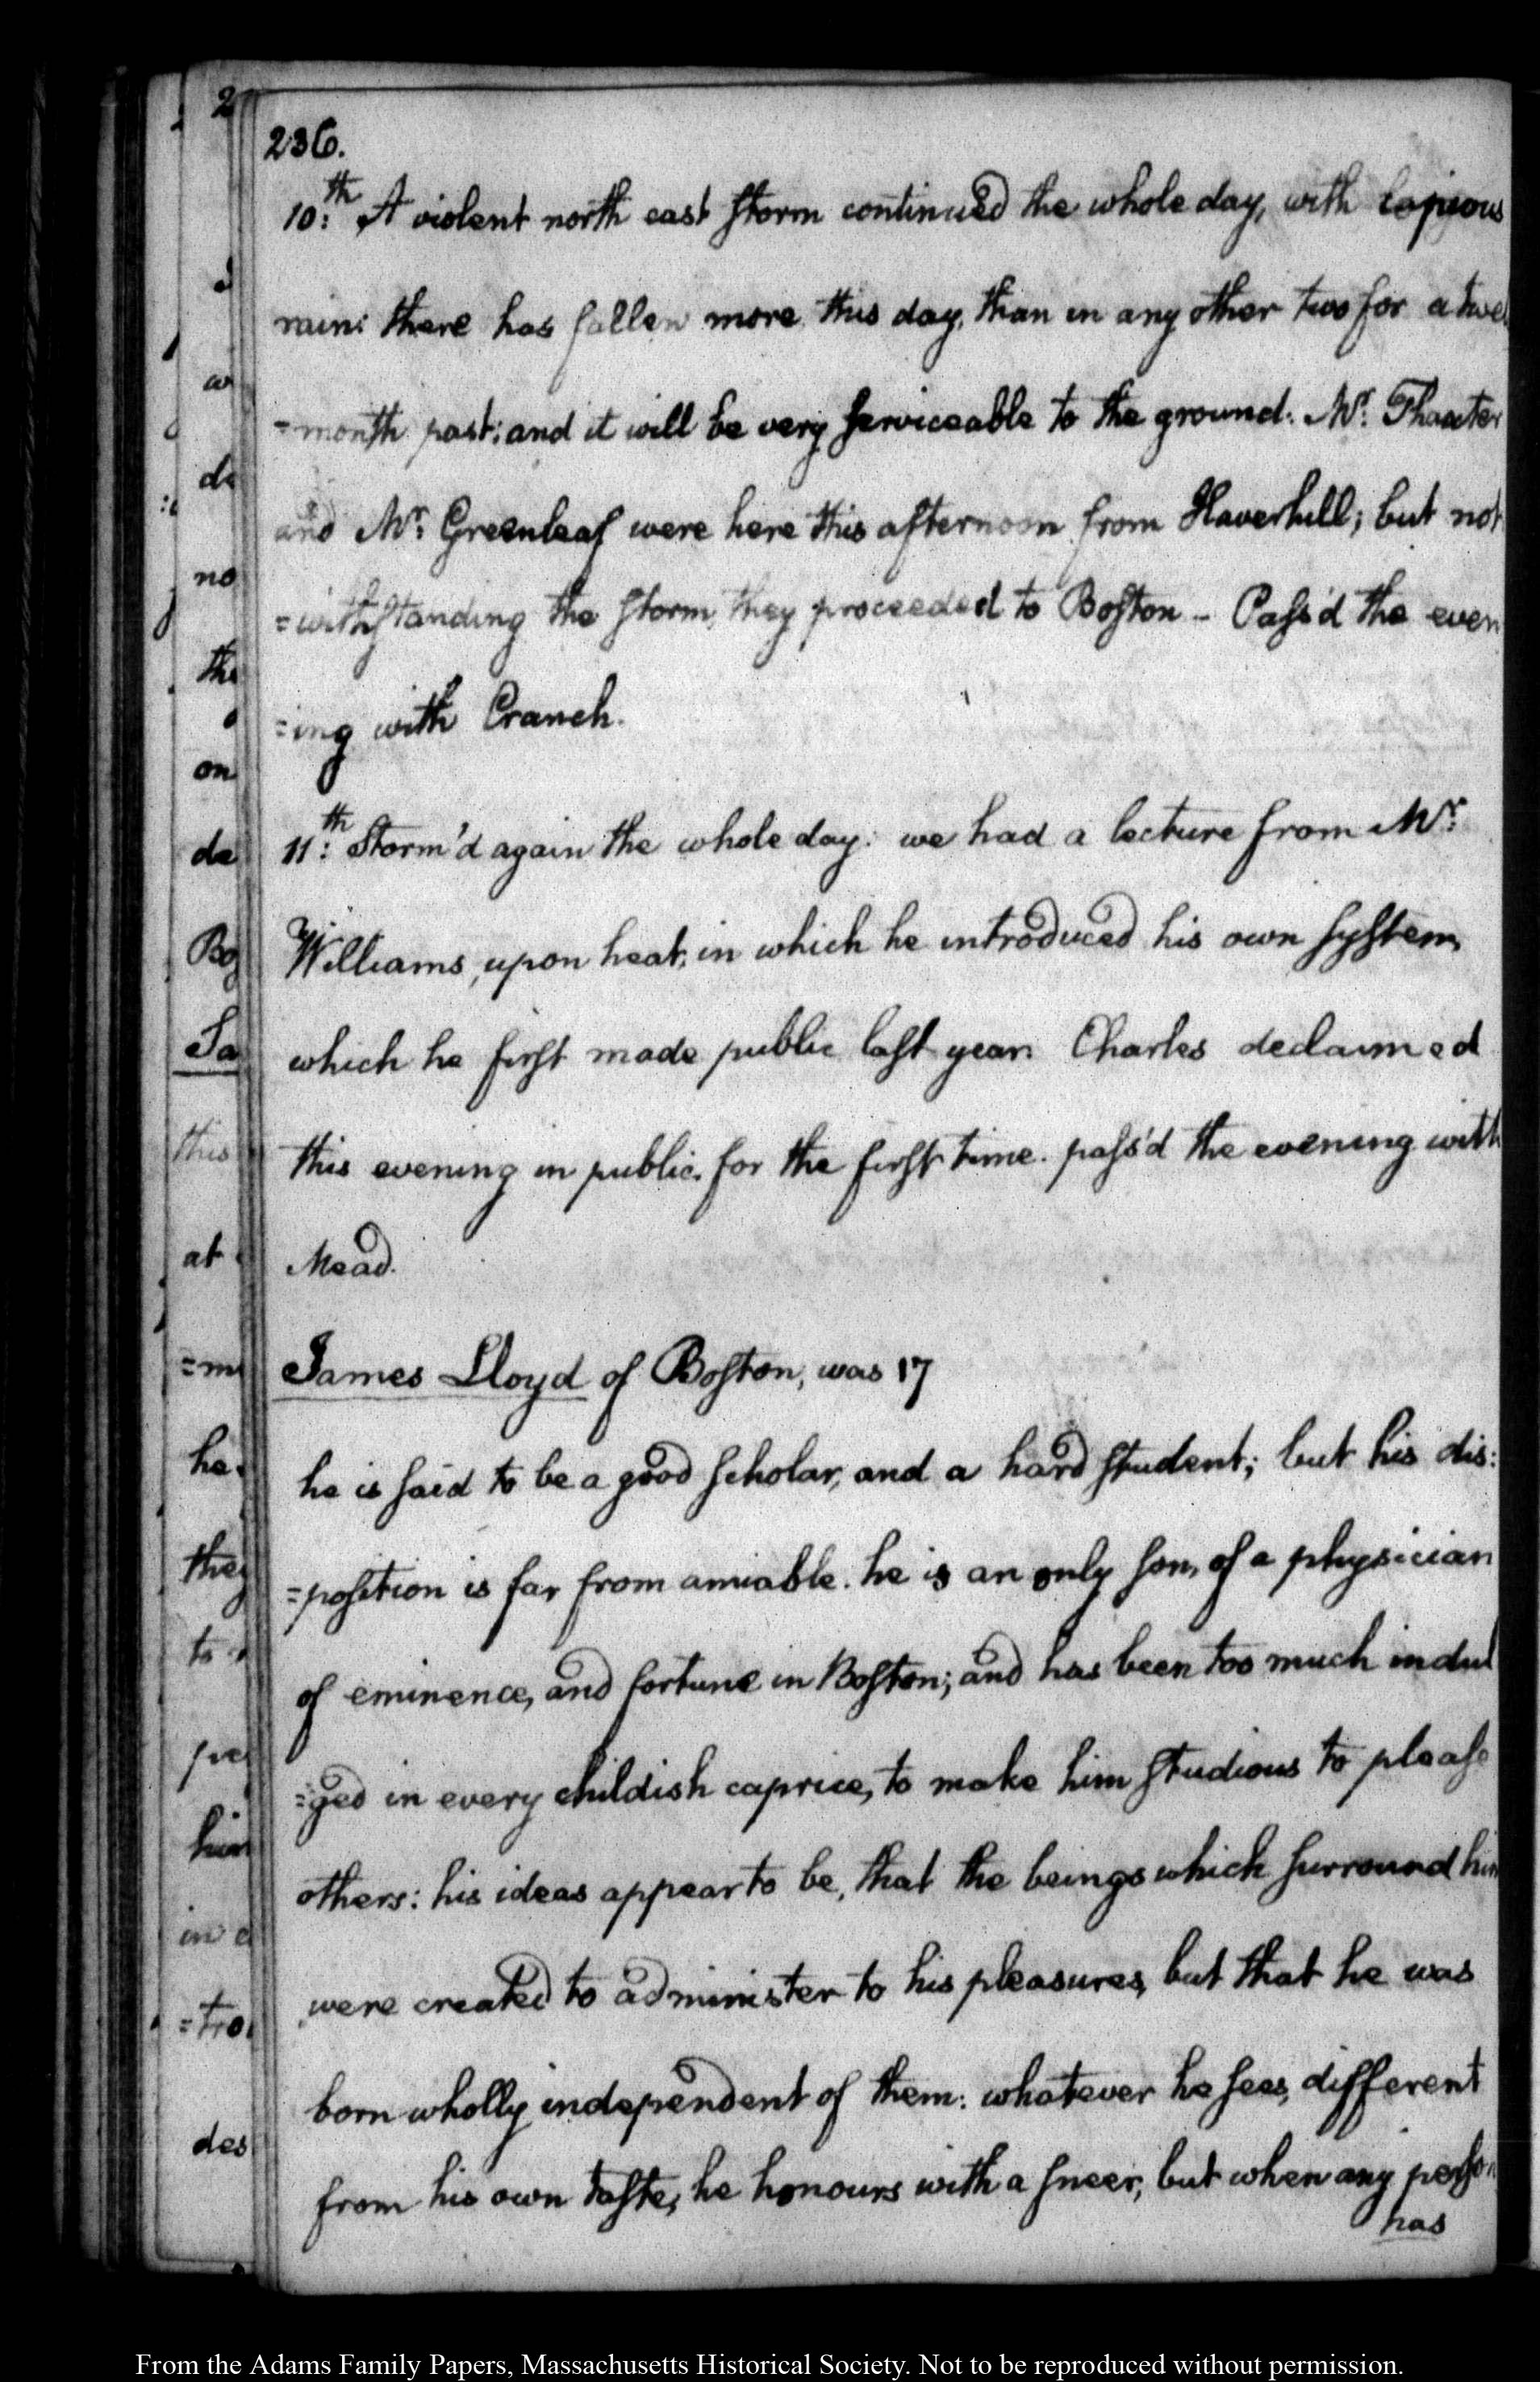 236.
10:th A violent north east storm continued the whole day, with copious
rain: there has fallen more this day, than in any other two for a twel
=month past: and it will be very serviceable to the ground. Mr: Thaxter
and Mr: Greenleaf were here this afternoon from Haverhill; but not
=withstanding the storm, they proceeded to Boston - Pass'd the even
=ing with Cranch.
11:th Storm'd again the whole day: we had a lecture from Mr:
Williams, upon heat, in which he introduced his own system,
which he first made public last year. Charles declaimed
this evening in public, for the first time. pass'd the evening with
Mead.
James Lloyd of Boston, was 17
he is said to be a good scholar, and a hard student; but his dis:
=position is far from amiable. he is an only son, of a physician
of eminence, and fortune in Boston; and has been too much indul
=ged in every childish caprice, to make him studious to please
others: his ideas appear to be, that the beings which surround him
were created to administer to his pleasures, but that he was
born wholly independent of them: whatever he sees, different
from his own taste, he honours with a sneer, but when any person
has
2
w
de
no
the
on
de
Bo
Sa
this
at
=m
he
they
to
pre
him
in
=tro
des
From the Adams Family Papers, Massachusetts Historical Society. Not to be reproduced without permission.